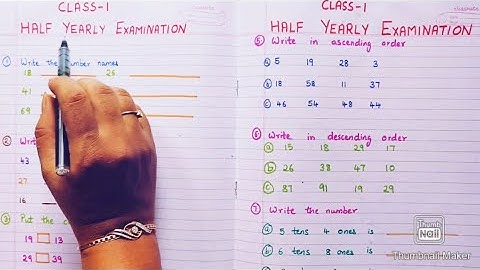 CLASS-1
HALF YEARLY EXAMINATION
① Write the number names
18 26
41
69
②
43
27
16
③ Put the
19 □ 13
29 □ 39
CLASS-1
HALF YEARLY EXAMINATION
⑤ Write in ascending order
ⓐ 5 19 28 3
ⓑ 18 58 11 37
ⓒ 46 54 48 44
⑥ Write in descending order
ⓐ 15 18 29 17
ⓑ 26 38 47 10
ⓒ 87 91 19 29
⑦ Write the number
ⓐ 5 tens 4 ones is
ⓑ 6 tens 8 ones is
Thumb
Nail
Thumbnail Maker